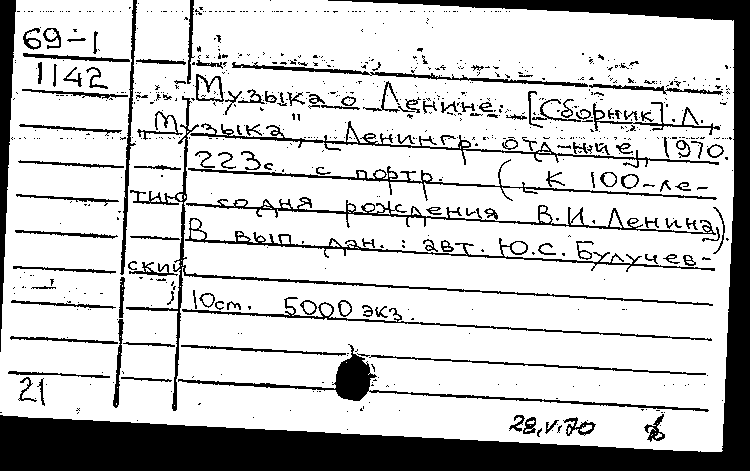 69-1
1142
Музыка о Ленине. [Сборник]. Л.,
"Музыка", [Ленингр. отд-ние], 1970.
223с. с портр. ([К 100-ле-
тию со дня рождения В.И. Ленина]).
В вып. дан.: авт. Ю.С. Булучев-
ский
10ст. 5000 экз.
21
28.V.70